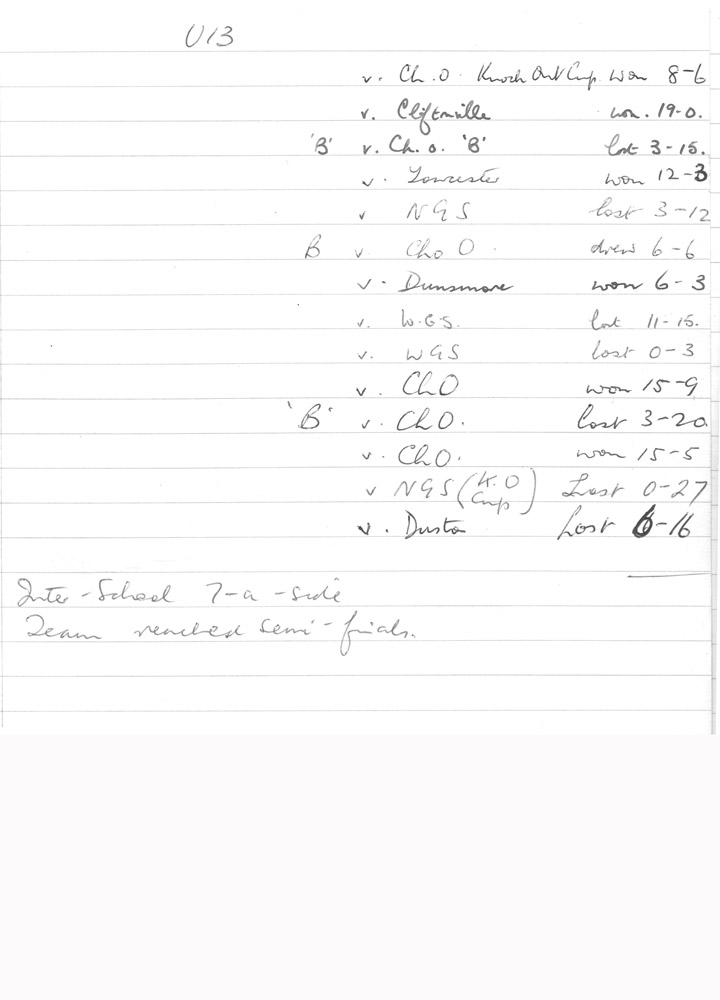 U13
v. Ch. O. Knock Out Cup won 8-6
v. Cliftonville won. 19-0.
'B' v. Ch. O. 'B' lost 3-15.
v. Towcester won 12-3
v NGS lost 3-12
B v Cho O. drew 6-6
v. Dunsmore won 6-3
v. W.G.S. lost 11-15.
v. WGS lost 0-3
v. ChO won 15-9
'B' v. ChO. lost 3-20
v. ChO. won 15-5
v NGS (K.O Cup) Lost 0-27
v. Duston Lost 6-16
Inter-School 7-a-side
Team reached semi-finals.